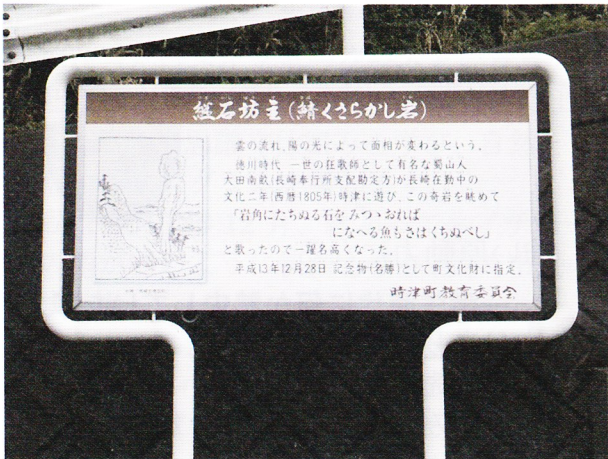 継石坊主(鯖くさらかし岩)
雲の流れ、陽の光によって面相が変わるという。
徳川時代 一世の狂歌師として有名な蜀山人
大田南畝(長崎奉行所支配勘定方)が長崎在勤中の
文化二年(西暦1805年)時津に遊び、この奇岩を眺めて
「岩角にたちぬる石をみつゝおれば
になへる魚もさはくちぬべし」
と歌ったので一躍名高くなった。
平成13年12月28日 記念物(名勝)として町文化財に指定。
時津町教育委員会